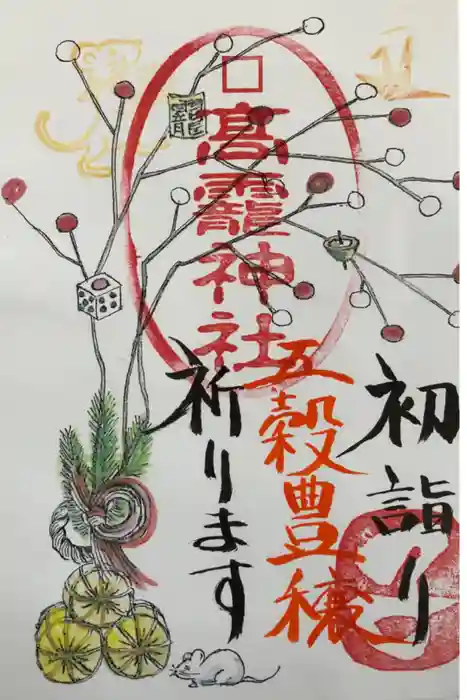 初詣り
五穀豊穣
祈ります
高龗神社